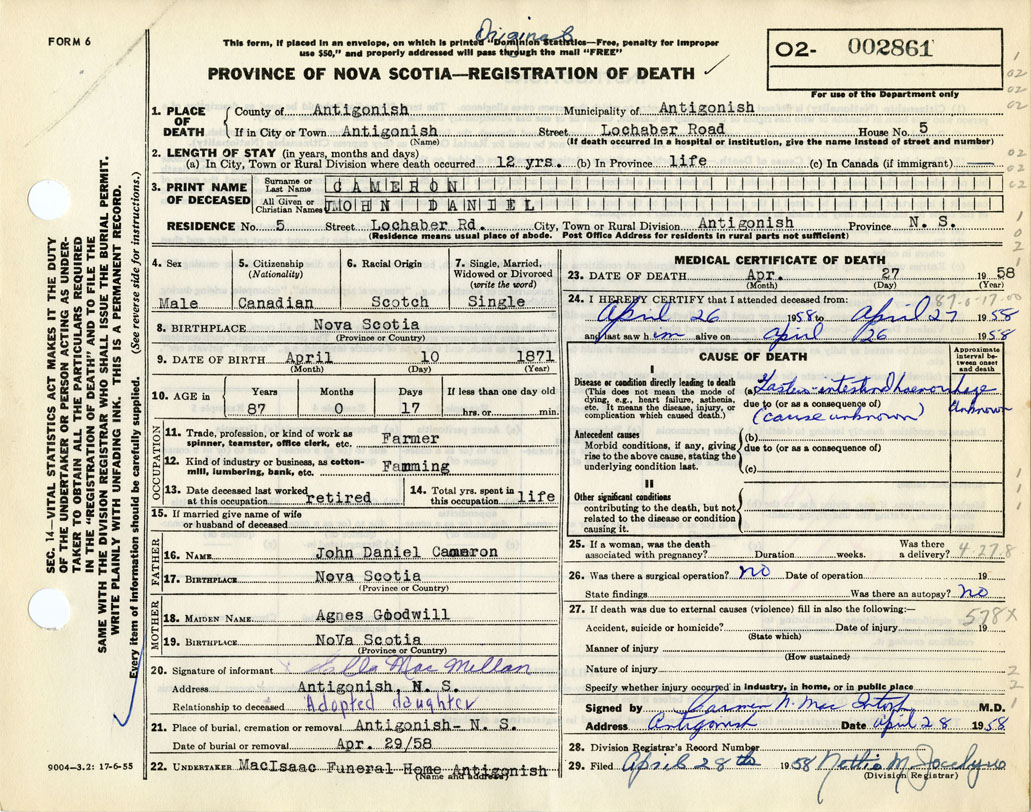 FORM 6
Original
This form, if placed in an envelope, on which is printed "Dominion Statistics—Free, penalty for improper
use $50," and properly addressed will pass through the mail "FREE"
PROVINCE OF NOVA SCOTIA—REGISTRATION OF DEATH ✓
02- 002861
For use of the Department only
1. PLACE OF DEATH { County of Antigonish Municipality of Antigonish
If in City or Town Antigonish Street Lochaber Road House No. 5
(Name) (If death occurred in a hospital or institution, give the name instead of street and number)
2. LENGTH OF STAY (in years, months and days)
(a) In City, Town or Rural Division where death occurred 12 yrs. (b) In Province life (c) In Canada (if immigrant)
3. PRINT NAME OF DECEASED Surname or Last Name CAMERON
All Given or Christian Names JOHN DANIEL
RESIDENCE No. 5 Street Lochaber Rd. City, Town or Rural Division Antigonish Province N. S.
(Residence means usual place of abode. Post Office Address for residents in rural parts not sufficient)
4. Sex Male
5. Citizenship (Nationality) Canadian
6. Racial Origin Scotch
7. Single, Married, Widowed or Divorced (write the word) Single
8. BIRTHPLACE Nova Scotia
(Province or Country)
9. DATE OF BIRTH April 10 1871
(Month) (Day) (Year)
10. AGE in Years 87 Months 0 Days 17 If less than one day old hrs. or min.
OCCUPATION
11. Trade, profession, or kind of work as spinner, teamster, office clerk, etc. Farmer
12. Kind of industry or business, as cotton-mill, lumbering, bank, etc. Famming
13. Date deceased last worked at this occupation retired 14. Total yrs. spent in this occupation life
15. If married give name of wife or husband of deceased
FATHER
16. NAME John Daniel Cameron
17. BIRTHPLACE Nova Scotia
(Province or Country)
MOTHER
18. MAIDEN NAME Agnes Goodwill
19. BIRTHPLACE NoVa Scotia
(Province or Country)
20. Signature of informant x Mac Millan
Address Antigonish, N. S.
Relationship to deceased Adopted daughter
21. Place of burial, cremation or removal Antigonish- N. S.
Date of burial or removal Apr. 29/58
22. UNDERTAKER MacIsaac Funeral Home Antigonish
(Name and address)
MEDICAL CERTIFICATE OF DEATH
23. DATE OF DEATH Apr. 27 1958
(Month) (Day) (Year)
87-0-17.00
24. I HEREBY CERTIFY that I attended deceased from:
April 26 1958 to April 27 1958
and last saw him alive on April 26 1958
CAUSE OF DEATH
Approximate interval between onset and death
I
Disease or condition directly leading to death
(This does not mean the mode of dying, e.g., heart failure, asthenia, etc. It means the disease, injury, or complication which caused death.)
(a) Gastro-intestinal haemorrhage
due to (or as a consequence of) Unknown
(cause unknown)
Antecedent causes
Morbid conditions, if any, giving rise to the above cause, stating the underlying condition last.
(b)
due to (or as a consequence of)
(c)
II
Other significant conditions
contributing to the death, but not related to the disease or condition causing it.
25. If a woman, was the death associated with pregnancy? Duration weeks. Was there a delivery?
4.27.8
26. Was there a surgical operation? No Date of operation 19
State findings Was there an autopsy? No
27. If death was due to external causes (violence) fill in also the following:—
578X
Accident, suicide or homicide? Date of injury 19
(State which)
Manner of injury
(How sustained)
Nature of injury
Specify whether injury occurred in industry, in home, or in public place
Signed by Carmen N. Mac Intosh M.D.
Address Antigonish Date April 28 1958
28. Division Registrar's Record Number
29. Filed April 28th 1958
(Division Registrar)
SEC. 14—VITAL STATISTICS ACT MAKES IT THE DUTY
OF THE UNDERTAKER OR PERSON ACTING AS UNDER-
TAKER TO OBTAIN ALL THE PARTICULARS REQUIRED
IN THE "REGISTRATION OF DEATH" AND TO FILE THE
SAME WITH THE DIVISION REGISTRAR WHO SHALL ISSUE THE BURIAL PERMIT.
WRITE PLAINLY WITH UNFADING INK. THIS IS A PERMANENT RECORD.
Every item of information should be carefully supplied. (See reverse side for instructions.)
9004—3.2: 17-6-55